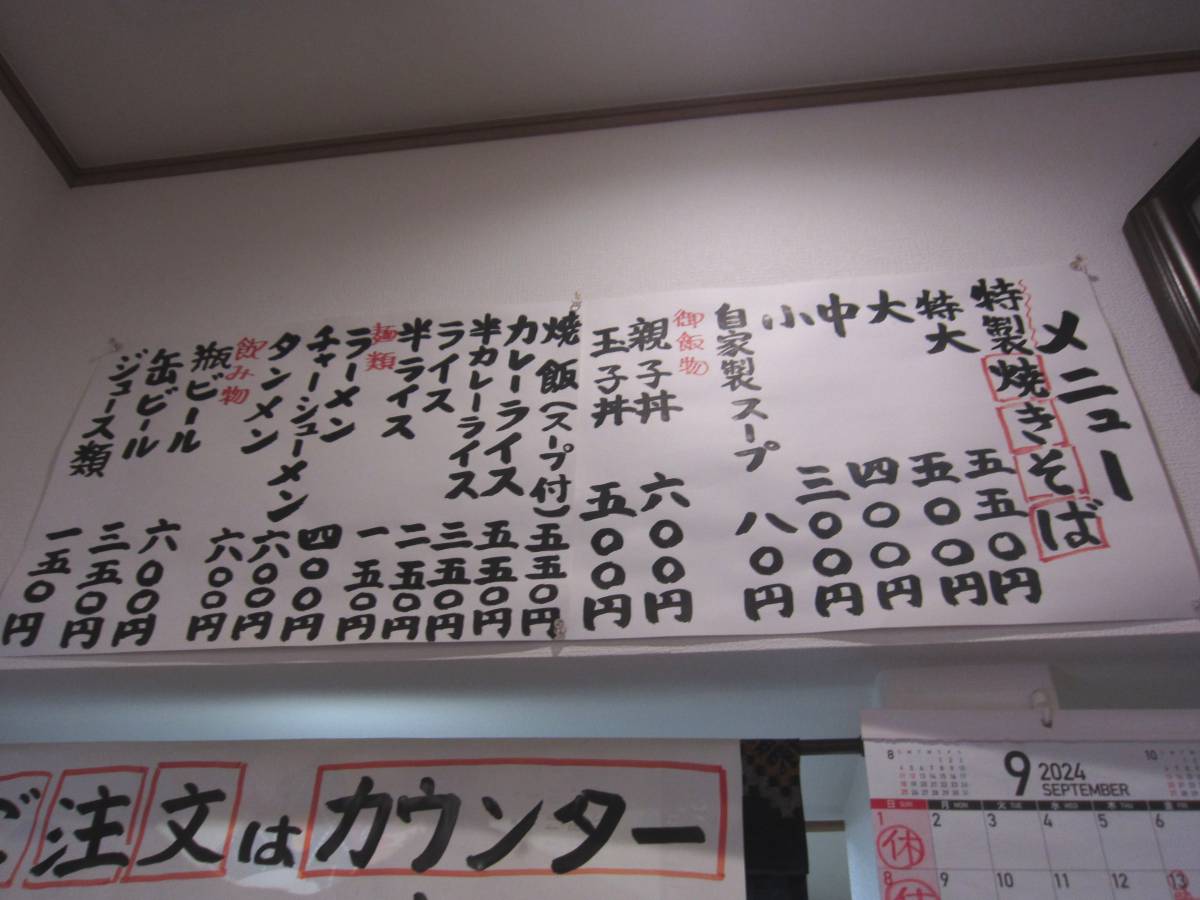 メニュー
特製焼きそば
特大 五五〇円
大 五〇〇円
中 四〇〇円
小 三〇〇円
自家製スープ 八〇円
御飯物
親子丼 六〇〇円
玉子丼 五〇〇円
焼飯(スープ付) 五五〇円
カレーライス 五五〇円
半カレーライス 三五〇円
ライス 二五〇円
半ライス 一五〇円
麺類
ラーメン 四〇〇円
チャーシューメン 六〇〇円
タンメン 六〇〇円
飲み物
瓶ビール 六〇〇円
缶ビール 三五〇円
ジュース類 一五〇円
ご注文はカウンター
8 9 2024 SEPTEMBER 10
日 SUN 月 MON 火 TUE 水 WED 木 THU 金 FRI
1 2 3 4 5 6
休
8 9 10 11 12 13